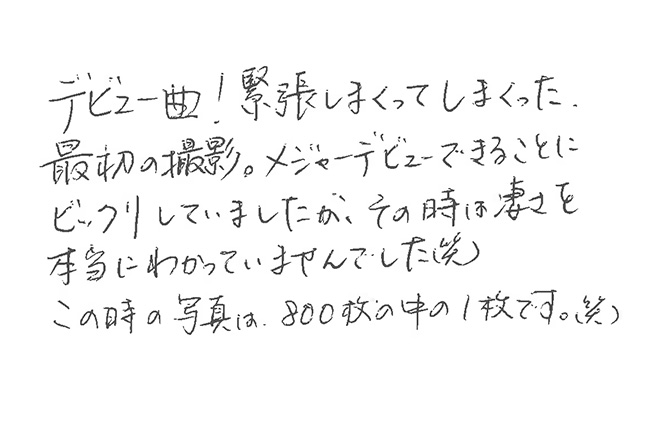 デビュー曲!緊張しまくってしまくった.
最初の撮影。メジャーデビューできることに
ビックリしていましたが、その時は凄さを
本当にわかっていませんでした(笑)
この時の写真は、800枚の中の1枚です。(笑)